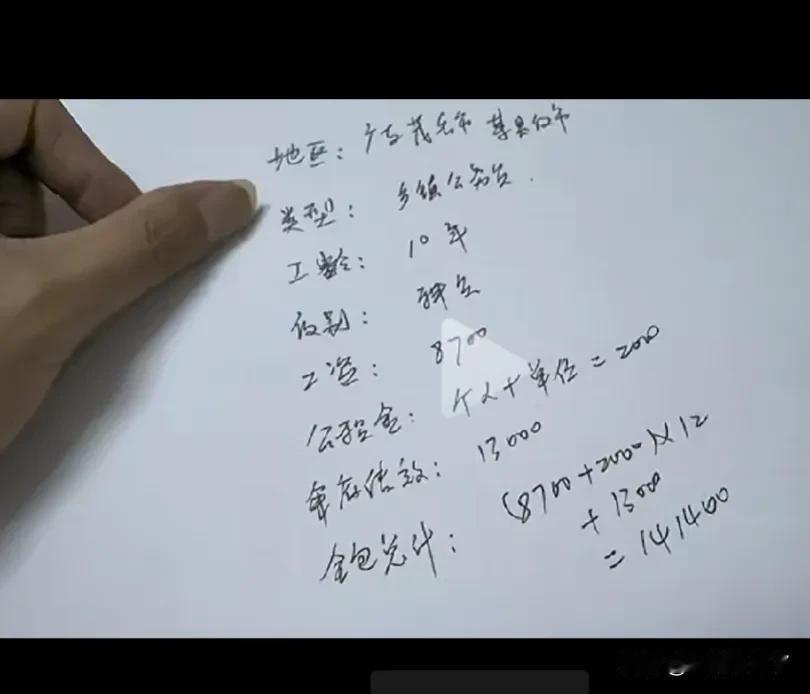 地区：广东茂名市 某县级市
类型：乡镇公务员.
工龄：10年
级别：科员
工资：8700
公积金：个人+单位=2000
年底绩效：13000
全包总计：(8700+2000)×12
+1300
=141400